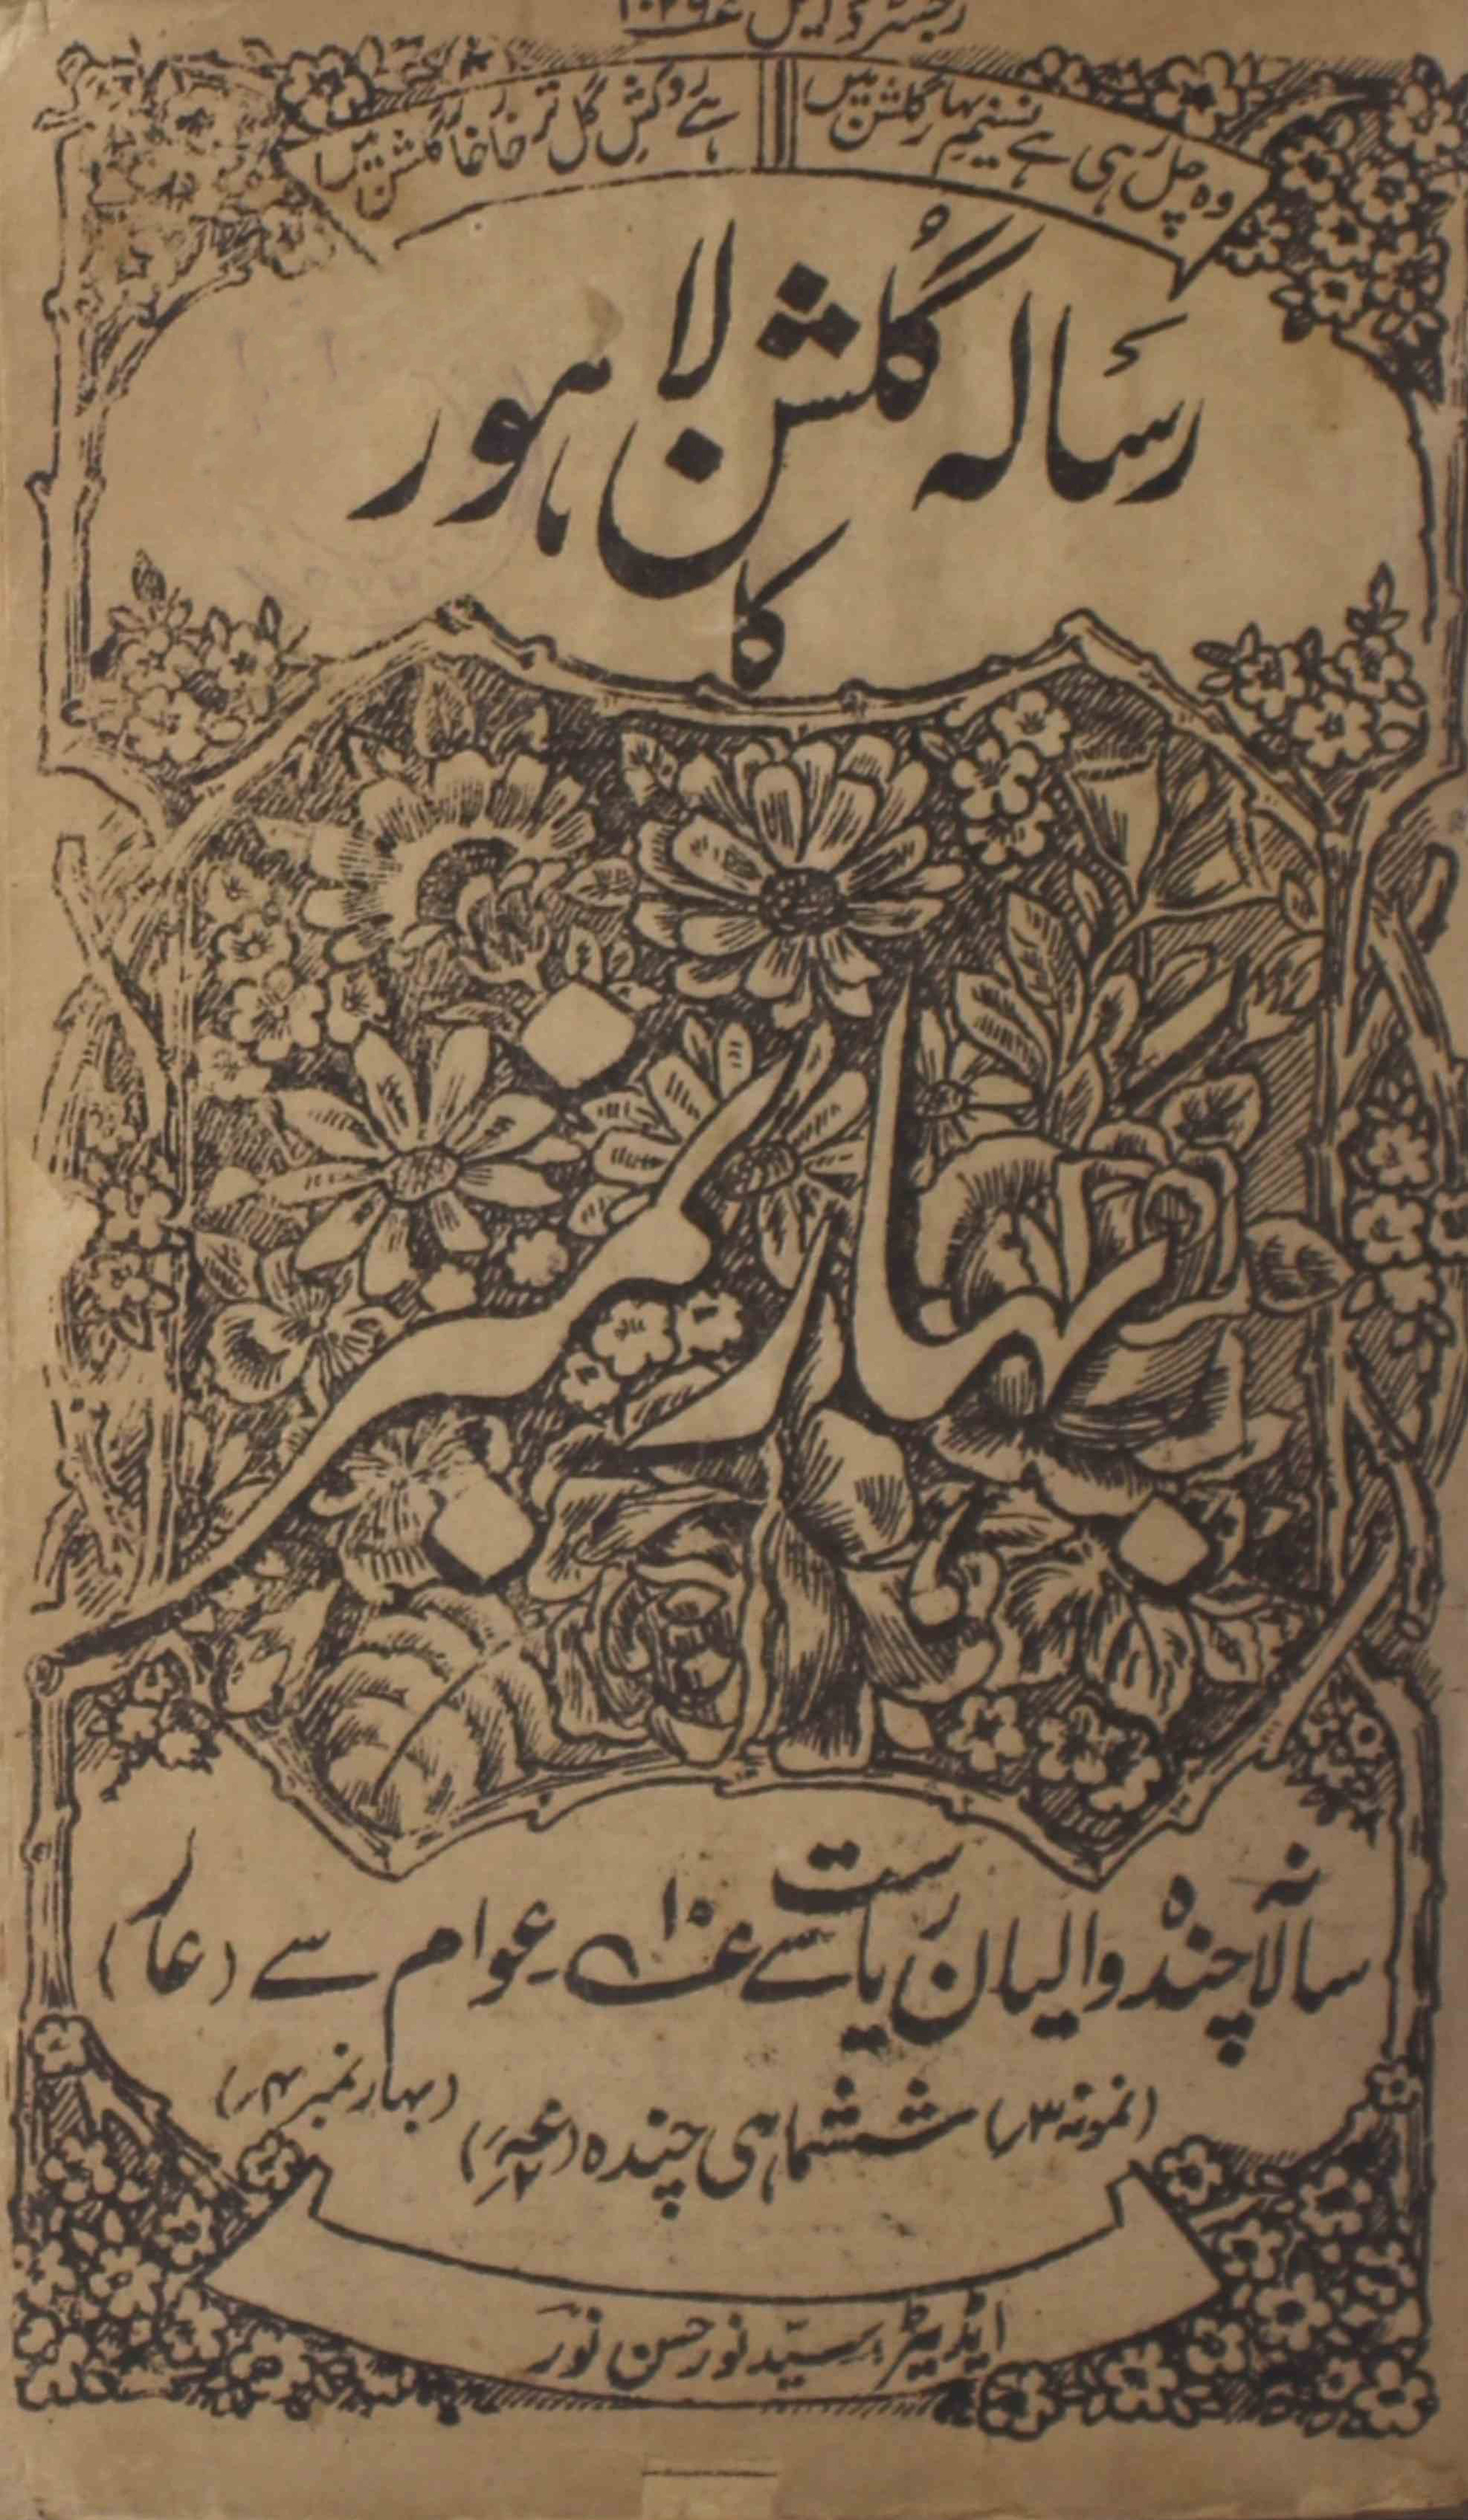 رجسٹرڈ ایل
وہ چل رہی ہے نسیم بہار گلشن میں
ہے روکش گل تر خار خار گلشن میں
رسالہ گلشن لاہور
کا
بہار نمبر
سالانہ چندہ والیان ریاست سے عوام سے
(نمونہ ۳ر) ششماہی چندہ (بہار نمبر ۴ر)
ایڈیٹر: سیّد نور حسن نورؔ